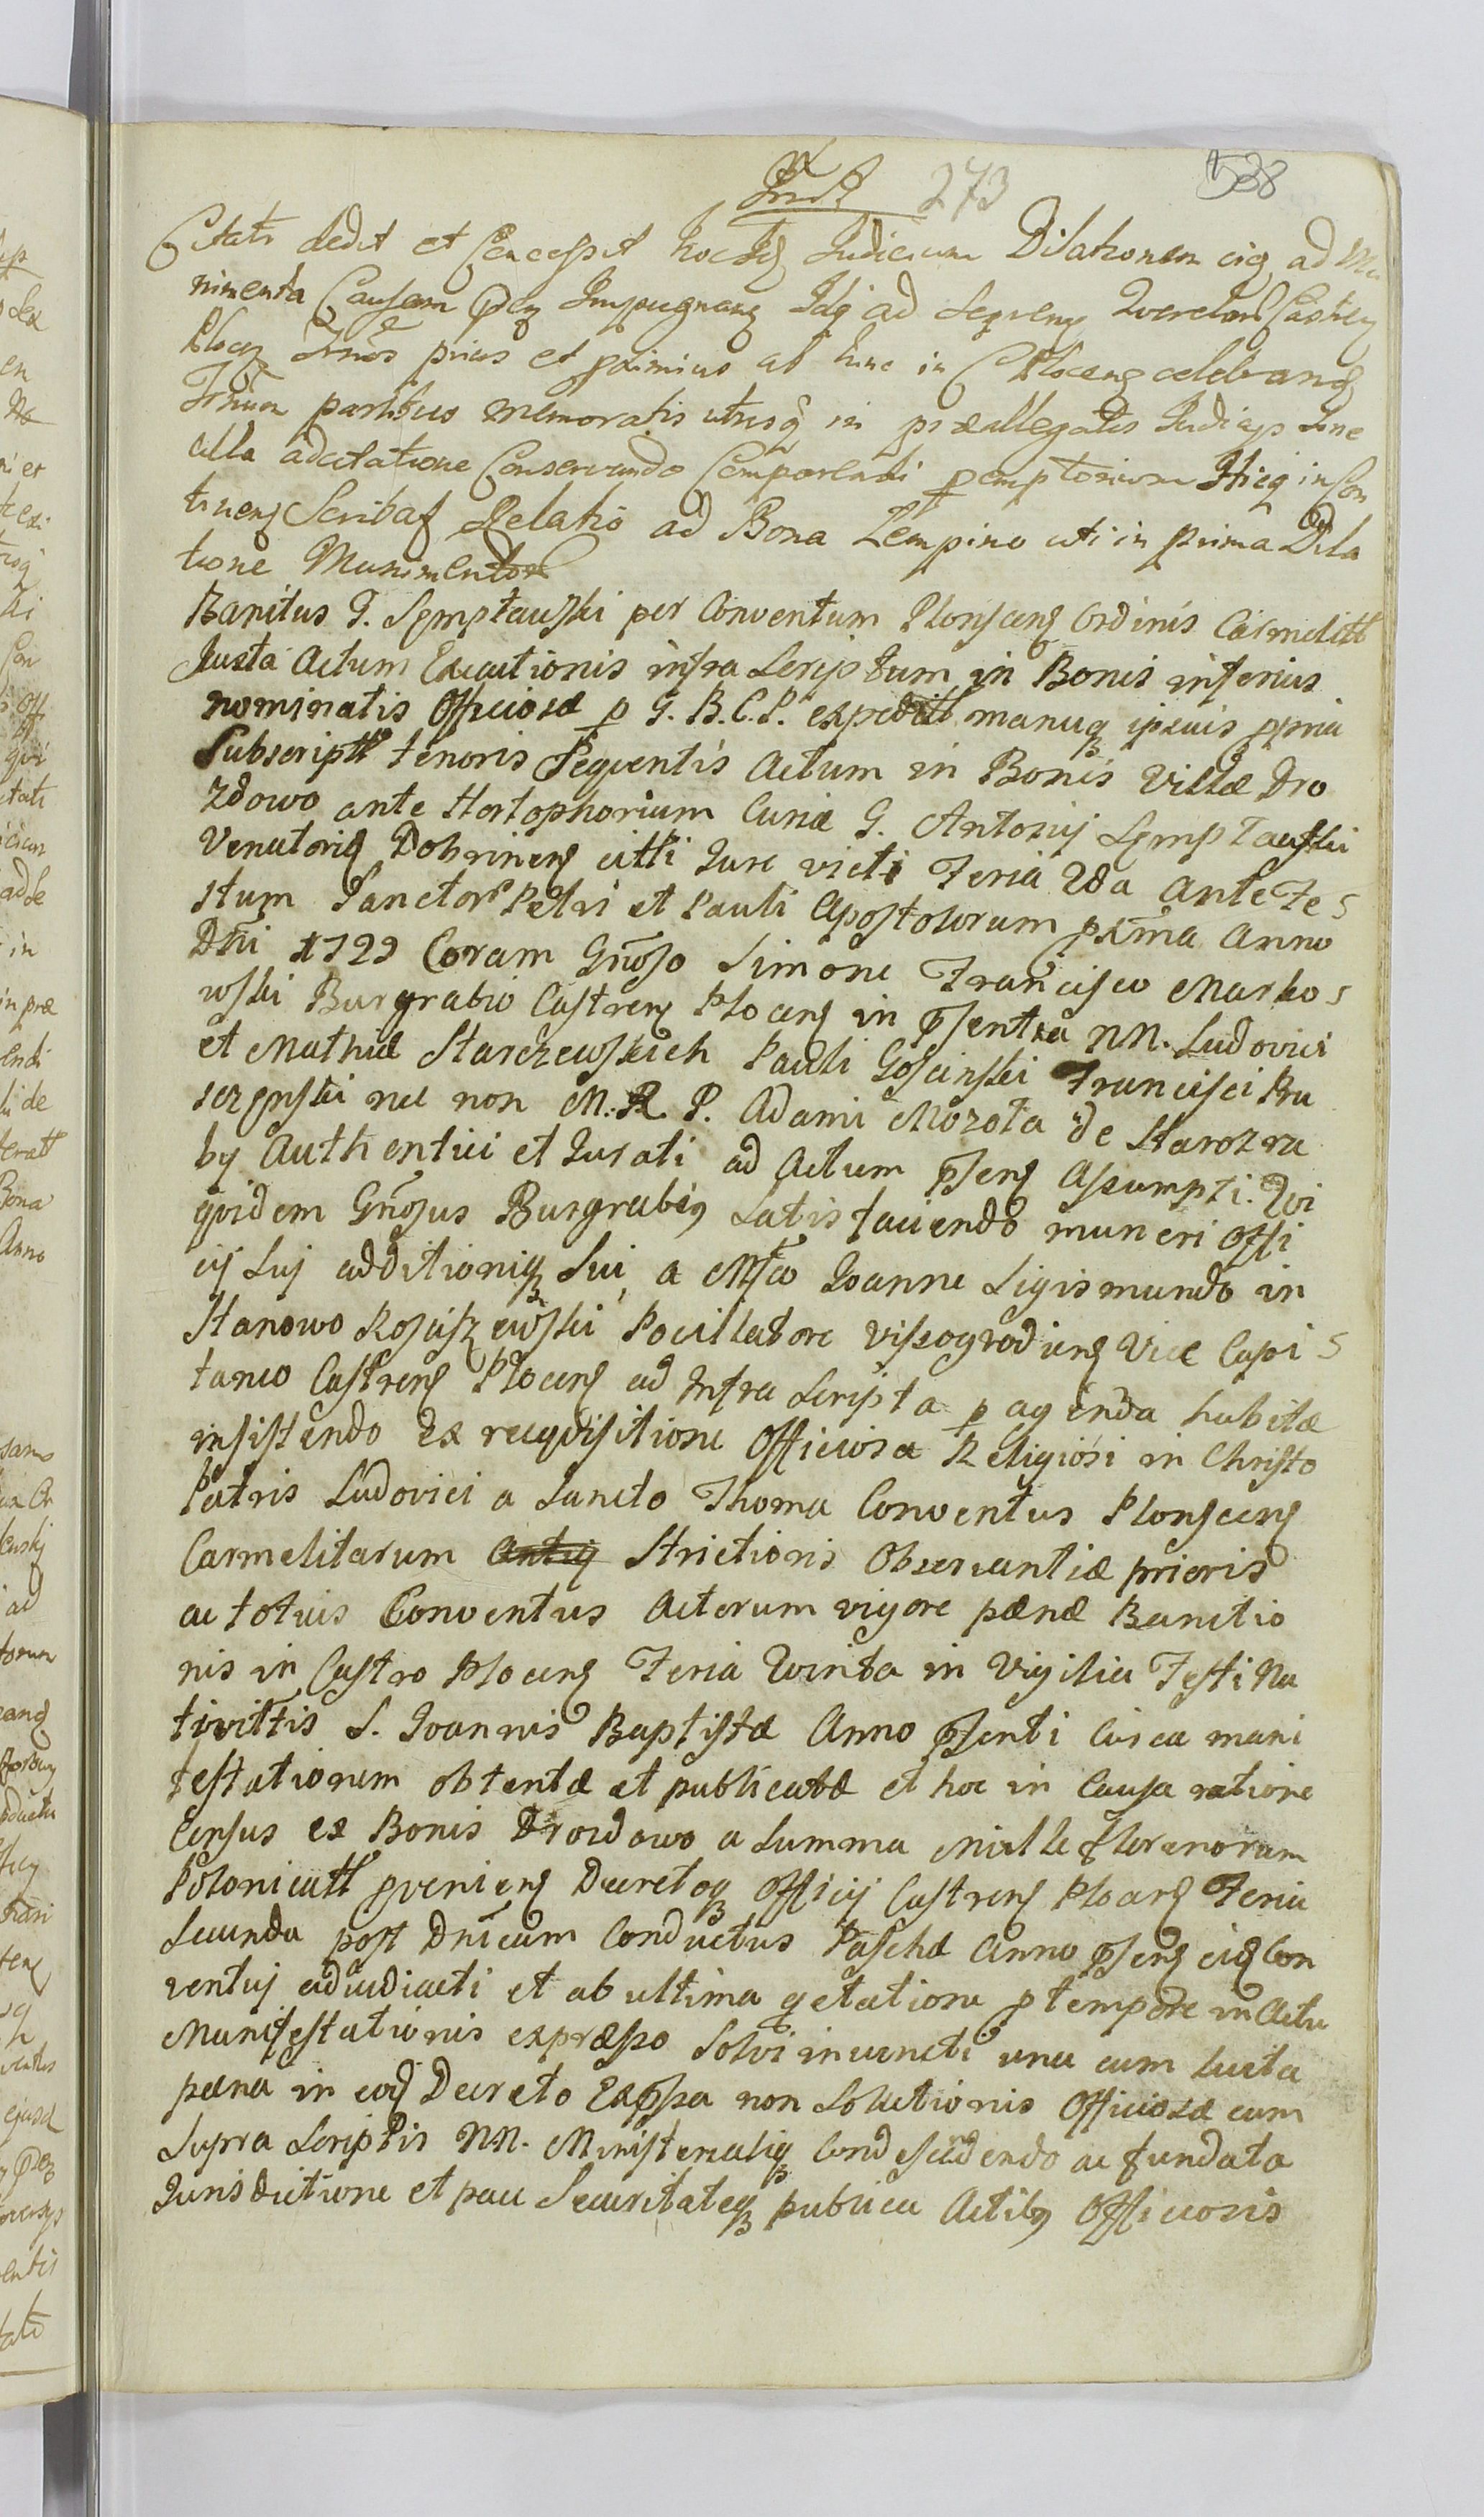 273
538
Citati dedit et Concessit hocce Judicium Dilationem eiq ad Mu
nimenta Causam Impugnang Idq ad Seqveng Qverelar Castreng
Ploceng prius et primius ab hinc in Ploceng celebrang
partibus memoratis utrisq in præallegatis Judicys Sine
ulla adcitatione Conservando Comparendi pemptorium in Con
tineng Scribaf Relatio ad Bona Lempino uti in prima Dila
tione Munimentor
Banitus G. Sęmpławski per Conventum Plonsceng Ordinis Carmelitt
Juxta Actum Executionis infra Scriptum in Bonis inferius
nominatis Officiosæ p G. B. C. P. expeditt manuq ipsius ppria
Subscriptt tenoris Seqventis Actum in Bonis Villæ Dro
zdowo ante Hortophorium Curiæ G. Antonij Sęmpławski
Venatoris Dobrineng citti Jure victi Feria 2da Ante Fe
stum Sanctor Petri et Pauli Apostolorum pxma Anno
Dni 1729 Coram Gnoso Simone Francisco Marko
wski Burgrabio Castreng Ploceng in psentia NN. Ludovici
et Mathiæ Starczewskich Pauli Goscinski Francisci Bru
szęnski nec non M. R. P. Adami Mozoła de Starozre
by Authentici et Jurati ad Actum pseng Assumpti. Qvi
qvidem Gnosus Burgrabiq Satisfaciendo muneri Offi
cij Suj additioniq Sui a Mfco Joanne Sigismundo in
Stanowo Rosciszewski Pocillatore Vissogrodieng Vice Capi
taneo Castreng Ploceng ad Infra Scripta p agenda habitæ
insistendo Ex reeqvisitione Officiosa Religiosi in Christo
Patris Ludovici a Sancto Thoma Conventus Plonsceng
Carmelitarum Antiq Strictioris Observantiæ prioris
ac totuis Conventus Actorum vigore pœnæ Banitio
nis in Castro Ploceng Feria Qvinta in Vigilia Festi Na
tivittis S. Joannis Baptistæ Anno psenti Circa mani
festationem obtentæ et publicatæ et hoc in Causa ratione
Census ex Bonis Drozdowo a Summa Mille florenorum
Polonicatt pvenieng Decretoq Officij Castreng Ploceng Feria
Secunda post Dnicam Conductus Paschæ Anno pseng eidg Con
ventuj adiudicati et ab ultima qetatione p tempore in Actu
Manifestationis expræsso Solvi invincti una cum lucta
pœna in eod Decreto Expssa non Solutionis Officiosæ cum
Supra Scriptis NN. Ministerialiq Condescendendo ac fundata
Jurisdictione et pace Securitateq publica Actibq Officiosis